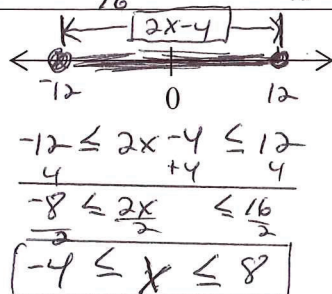 16
2x-4
-12 0 12
-12 ≤ 2x -4 ≤ 12
4 +4 4
-8 ≤ 2x ≤ 16
2 2 2
-4 ≤ x ≤ 8